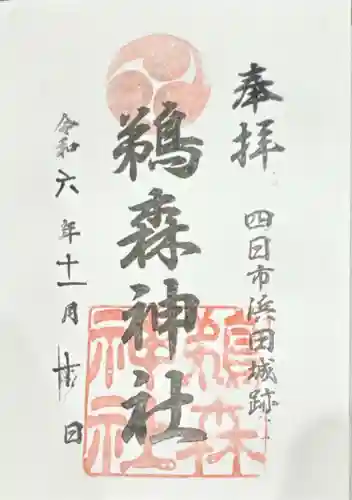 奉拝
四日市浜田城跡
鵜森神社
令和六年十一月廿日
鵜森
神社